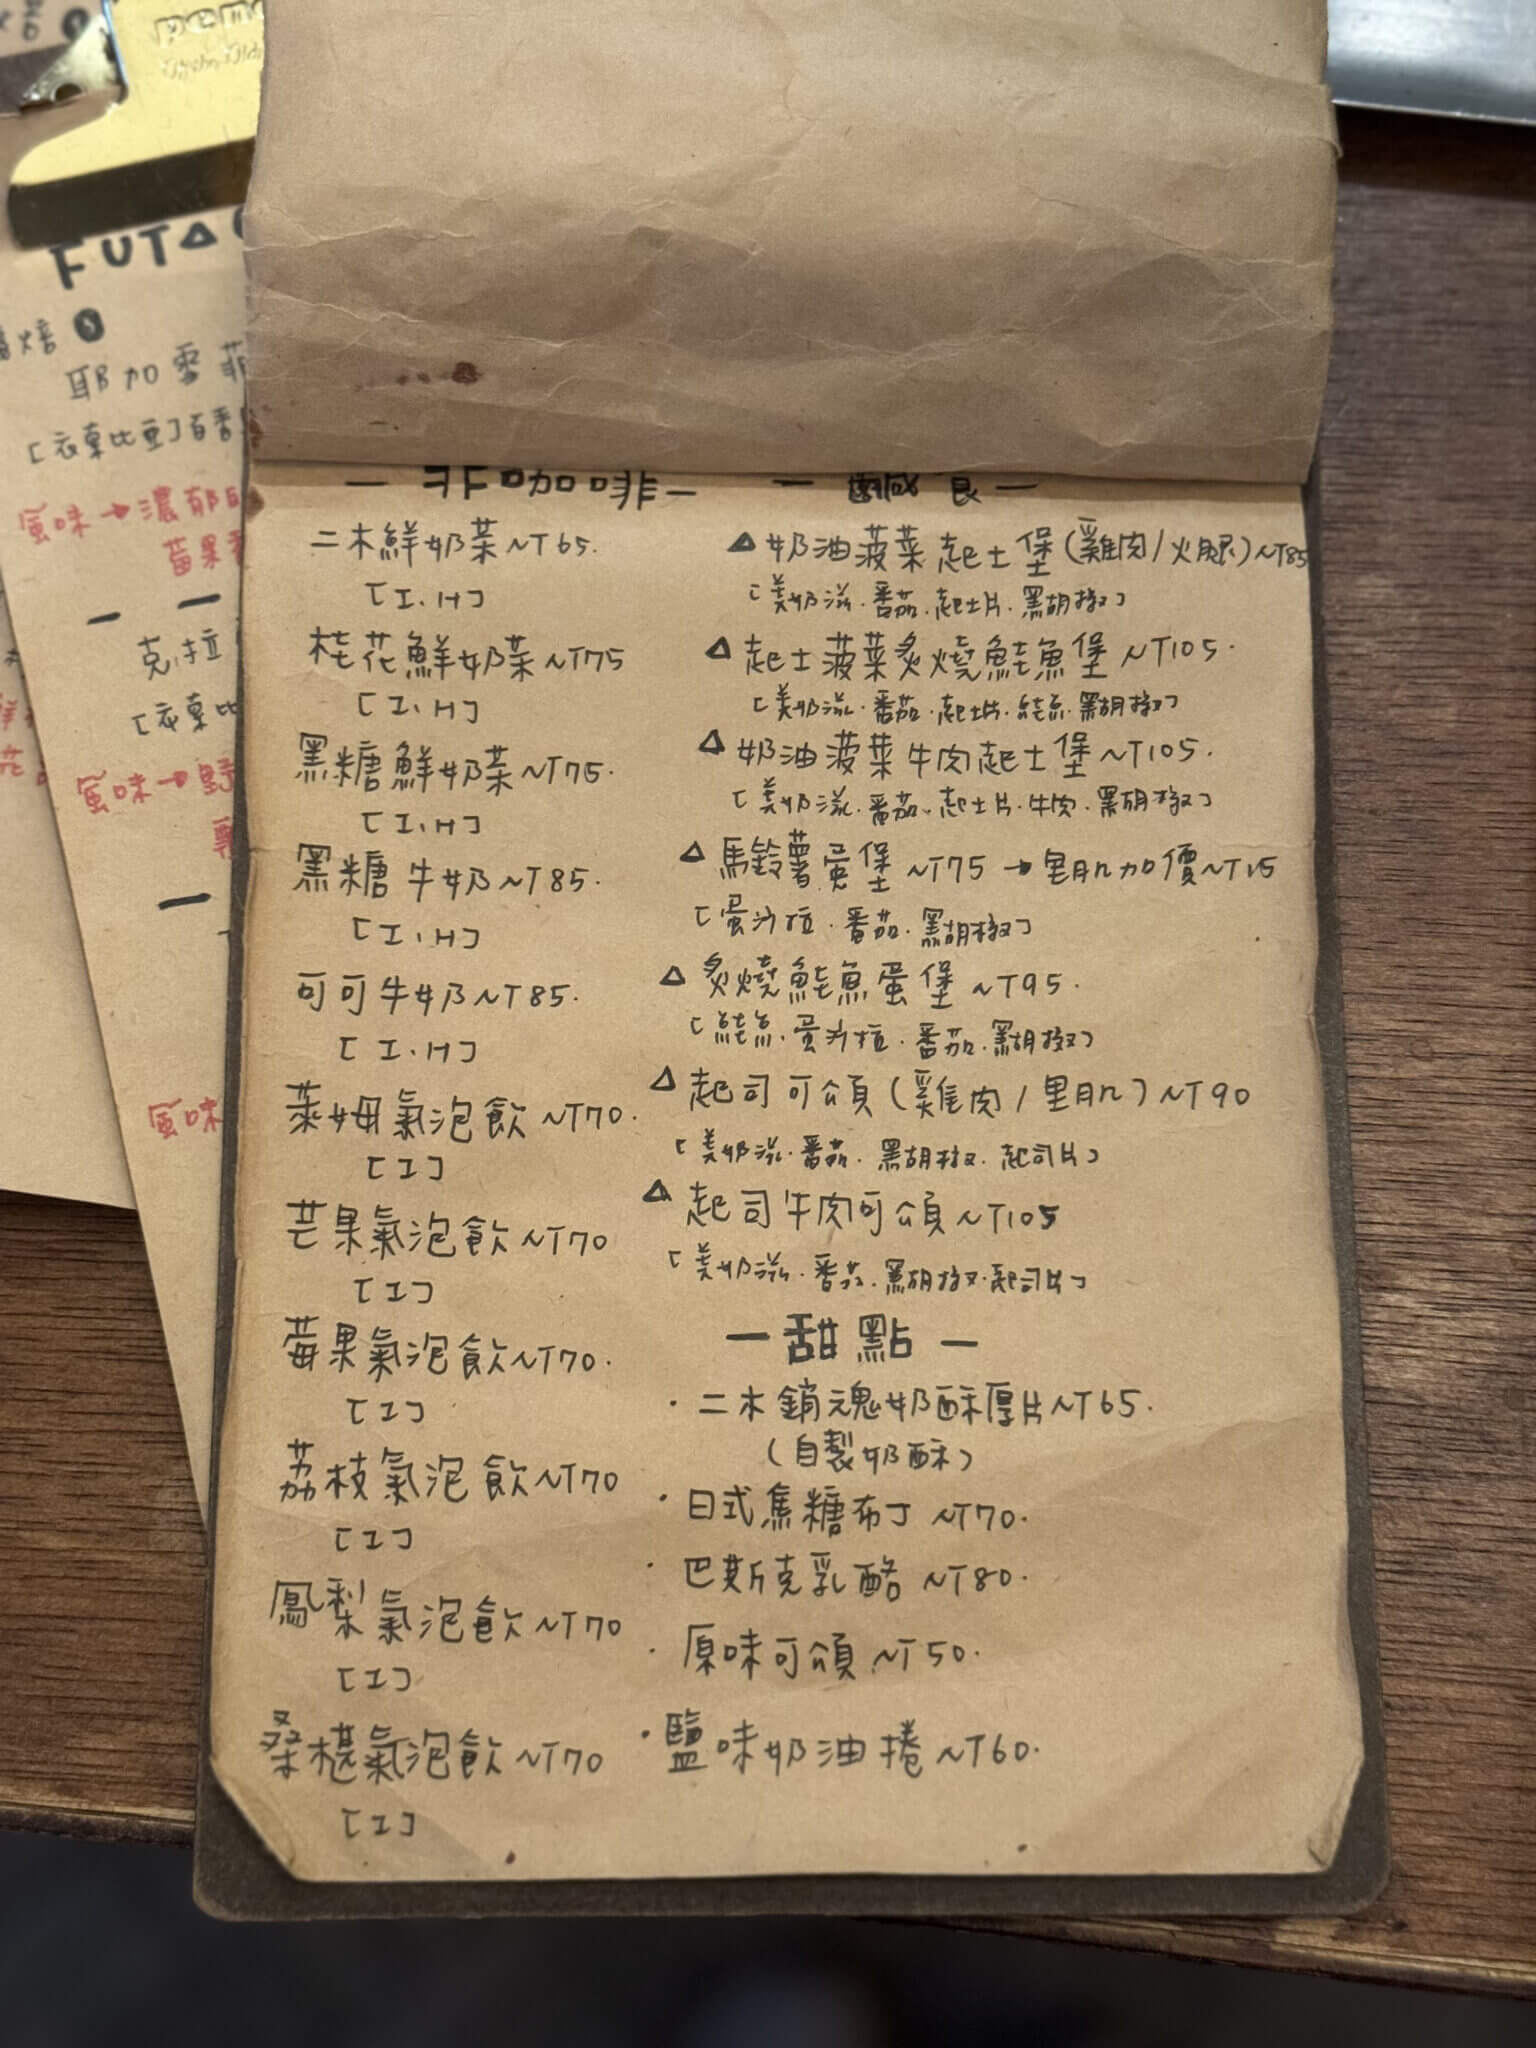 FUTA
耶加雪菲
[衣索比亞]
風味→濃郁
莓果
克拉
[衣索比
風味→野
風味
一 非咖啡 一
二木鮮奶茶 NT65.
[I.H]
桂花鮮奶茶 NT75
[I.H]
黑糖鮮奶茶 NT75.
[I.H]
黑糖牛奶 NT85.
[I.H]
可可牛奶 NT85.
[I.H]
萊姆氣泡飲 NT70.
[I]
芒果氣泡飲 NT70
[I]
莓果氣泡飲 NT70.
[I]
荔枝氣泡飲 NT70
[I]
鳳梨氣泡飲 NT70
[I]
桑椹氣泡飲 NT70
[I]
一 鹹食 一
△ 奶油菠菜起士堡(雞肉/火腿) NT85
[美奶滋.番茄.起士片.黑胡椒]
△ 起士菠菜炙燒鮭魚堡 NT105.
[美奶滋.番茄.起士片.鮭魚.黑胡椒]
△ 奶油菠菜牛肉起士堡 NT105.
[美奶滋.番茄.起士片.牛肉.黑胡椒]
△ 馬鈴薯蛋堡 NT75 → 里肌加價NT15
[蛋沙拉.番茄.黑胡椒]
△ 炙燒鮭魚蛋堡 NT95.
[鮭魚.蛋沙拉.番茄.黑胡椒]
△ 起司可頌(雞肉/里肌) NT90
[美奶滋.番茄.黑胡椒.起司片]
△ 起司牛肉可頌 NT105
[美奶滋.番茄.黑胡椒.起司片]
一 甜點 一
· 二木銷魂奶酥厚片 NT65.
(自製奶酥)
· 日式焦糖布丁 NT70.
· 巴斯克乳酪 NT80.
· 原味可頌 NT50.
· 鹽味奶油捲 NT60.